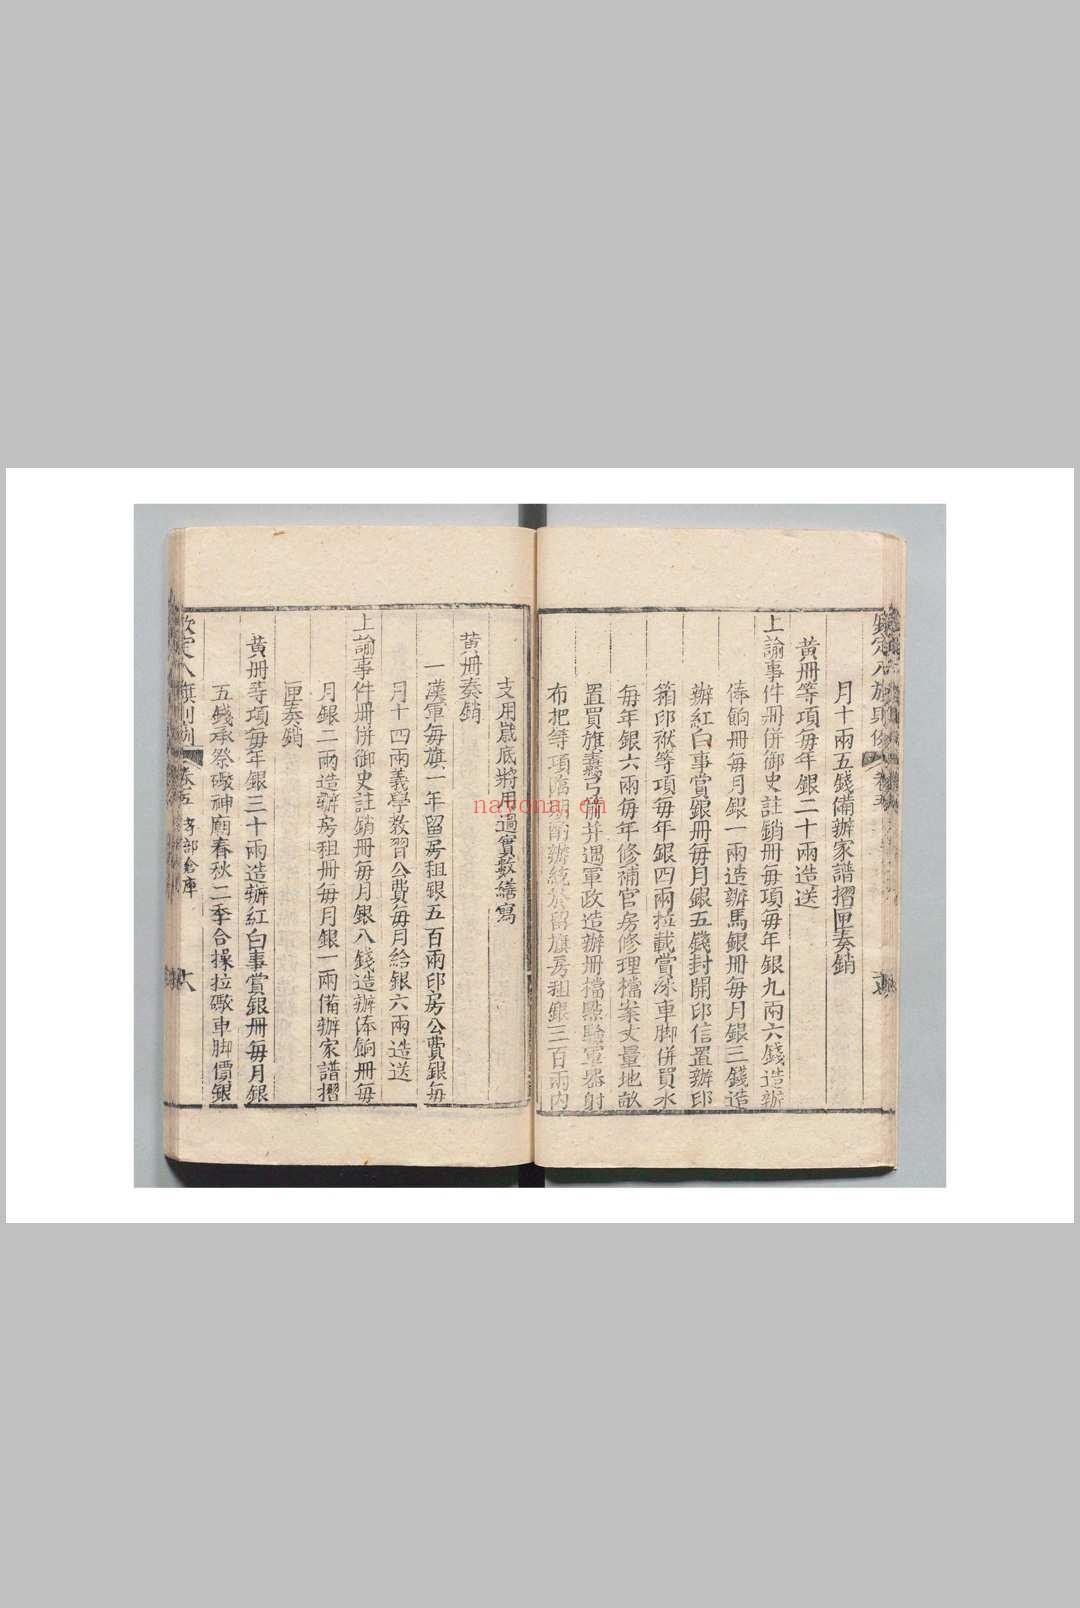 月十兩五錢備辦家譜摺匣奏銷
黃冊等項每年銀二十兩造送
上諭事件冊併御史註銷冊每項每年銀九兩六錢造辦
俸餉冊每月銀一兩造辦馬銀冊每月銀三錢造
辦紅白事賞銀冊每月銀五錢封開印信置辦印
箱印袱等項每年銀四兩拉載賞 車脚併買水
每年銀六兩每年修補官房修理檔案丈量地畝
置買旗纛弓箭并遇軍政造辦冊檔點驗軍器射
布把等項臨期酌辦統於留旗房租銀三百兩內
支用嵗底將用過實數繕寫
黃冊奏銷
一漢軍每旗一年留房租銀五百兩印房公費銀每
月十四兩義學教習公費每月給銀六兩造送
上諭事件冊併御史註銷冊每月銀八錢造辦俸餉冊每
月銀二兩造辦房租冊每月銀一兩備辦家譜摺
匣奏銷
黃冊等項每年銀三十兩造辦紅白事賞銀冊每月銀
五錢承祭礮神廟春秋二季合操拉礮車脚價銀
欽定八旗則例 卷五 部倉庫 六
nayona.cn